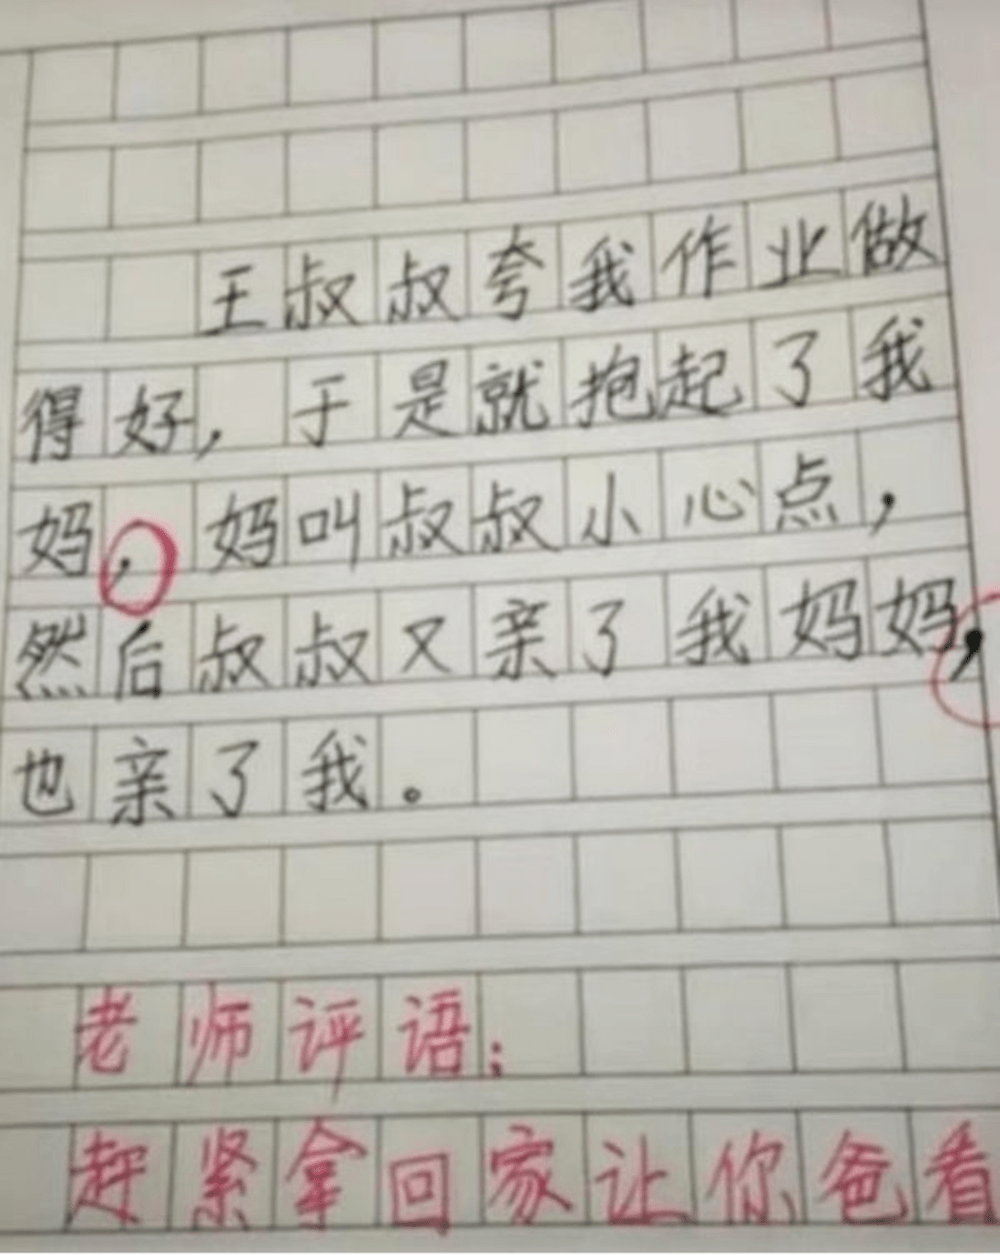 王叔叔夸我作业做
得好，于是就抱起了我
妈，妈叫叔叔小心点，
然后叔叔又亲了我妈妈，
也亲了我。
老师评语：
赶紧拿回家让你爸看